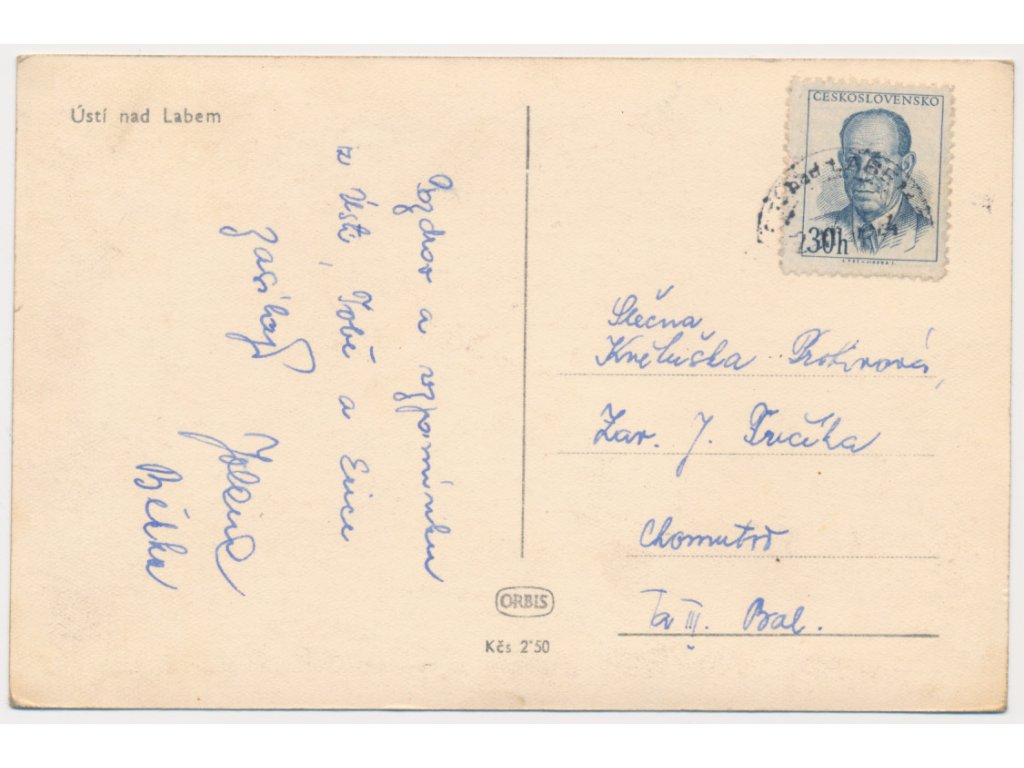 Ústí nad Labem
Pozdrav a vzpomínku
z Ústí, Tobě a Evice
zasílají
Jolana
Běthka
ČESKOSLOVENSKO
30h
nad LABEM
Slečna
Květuška
Zav. J. Fučíka
Chomutov
Ta III. Bal.
ORBIS
Kčs 2·50